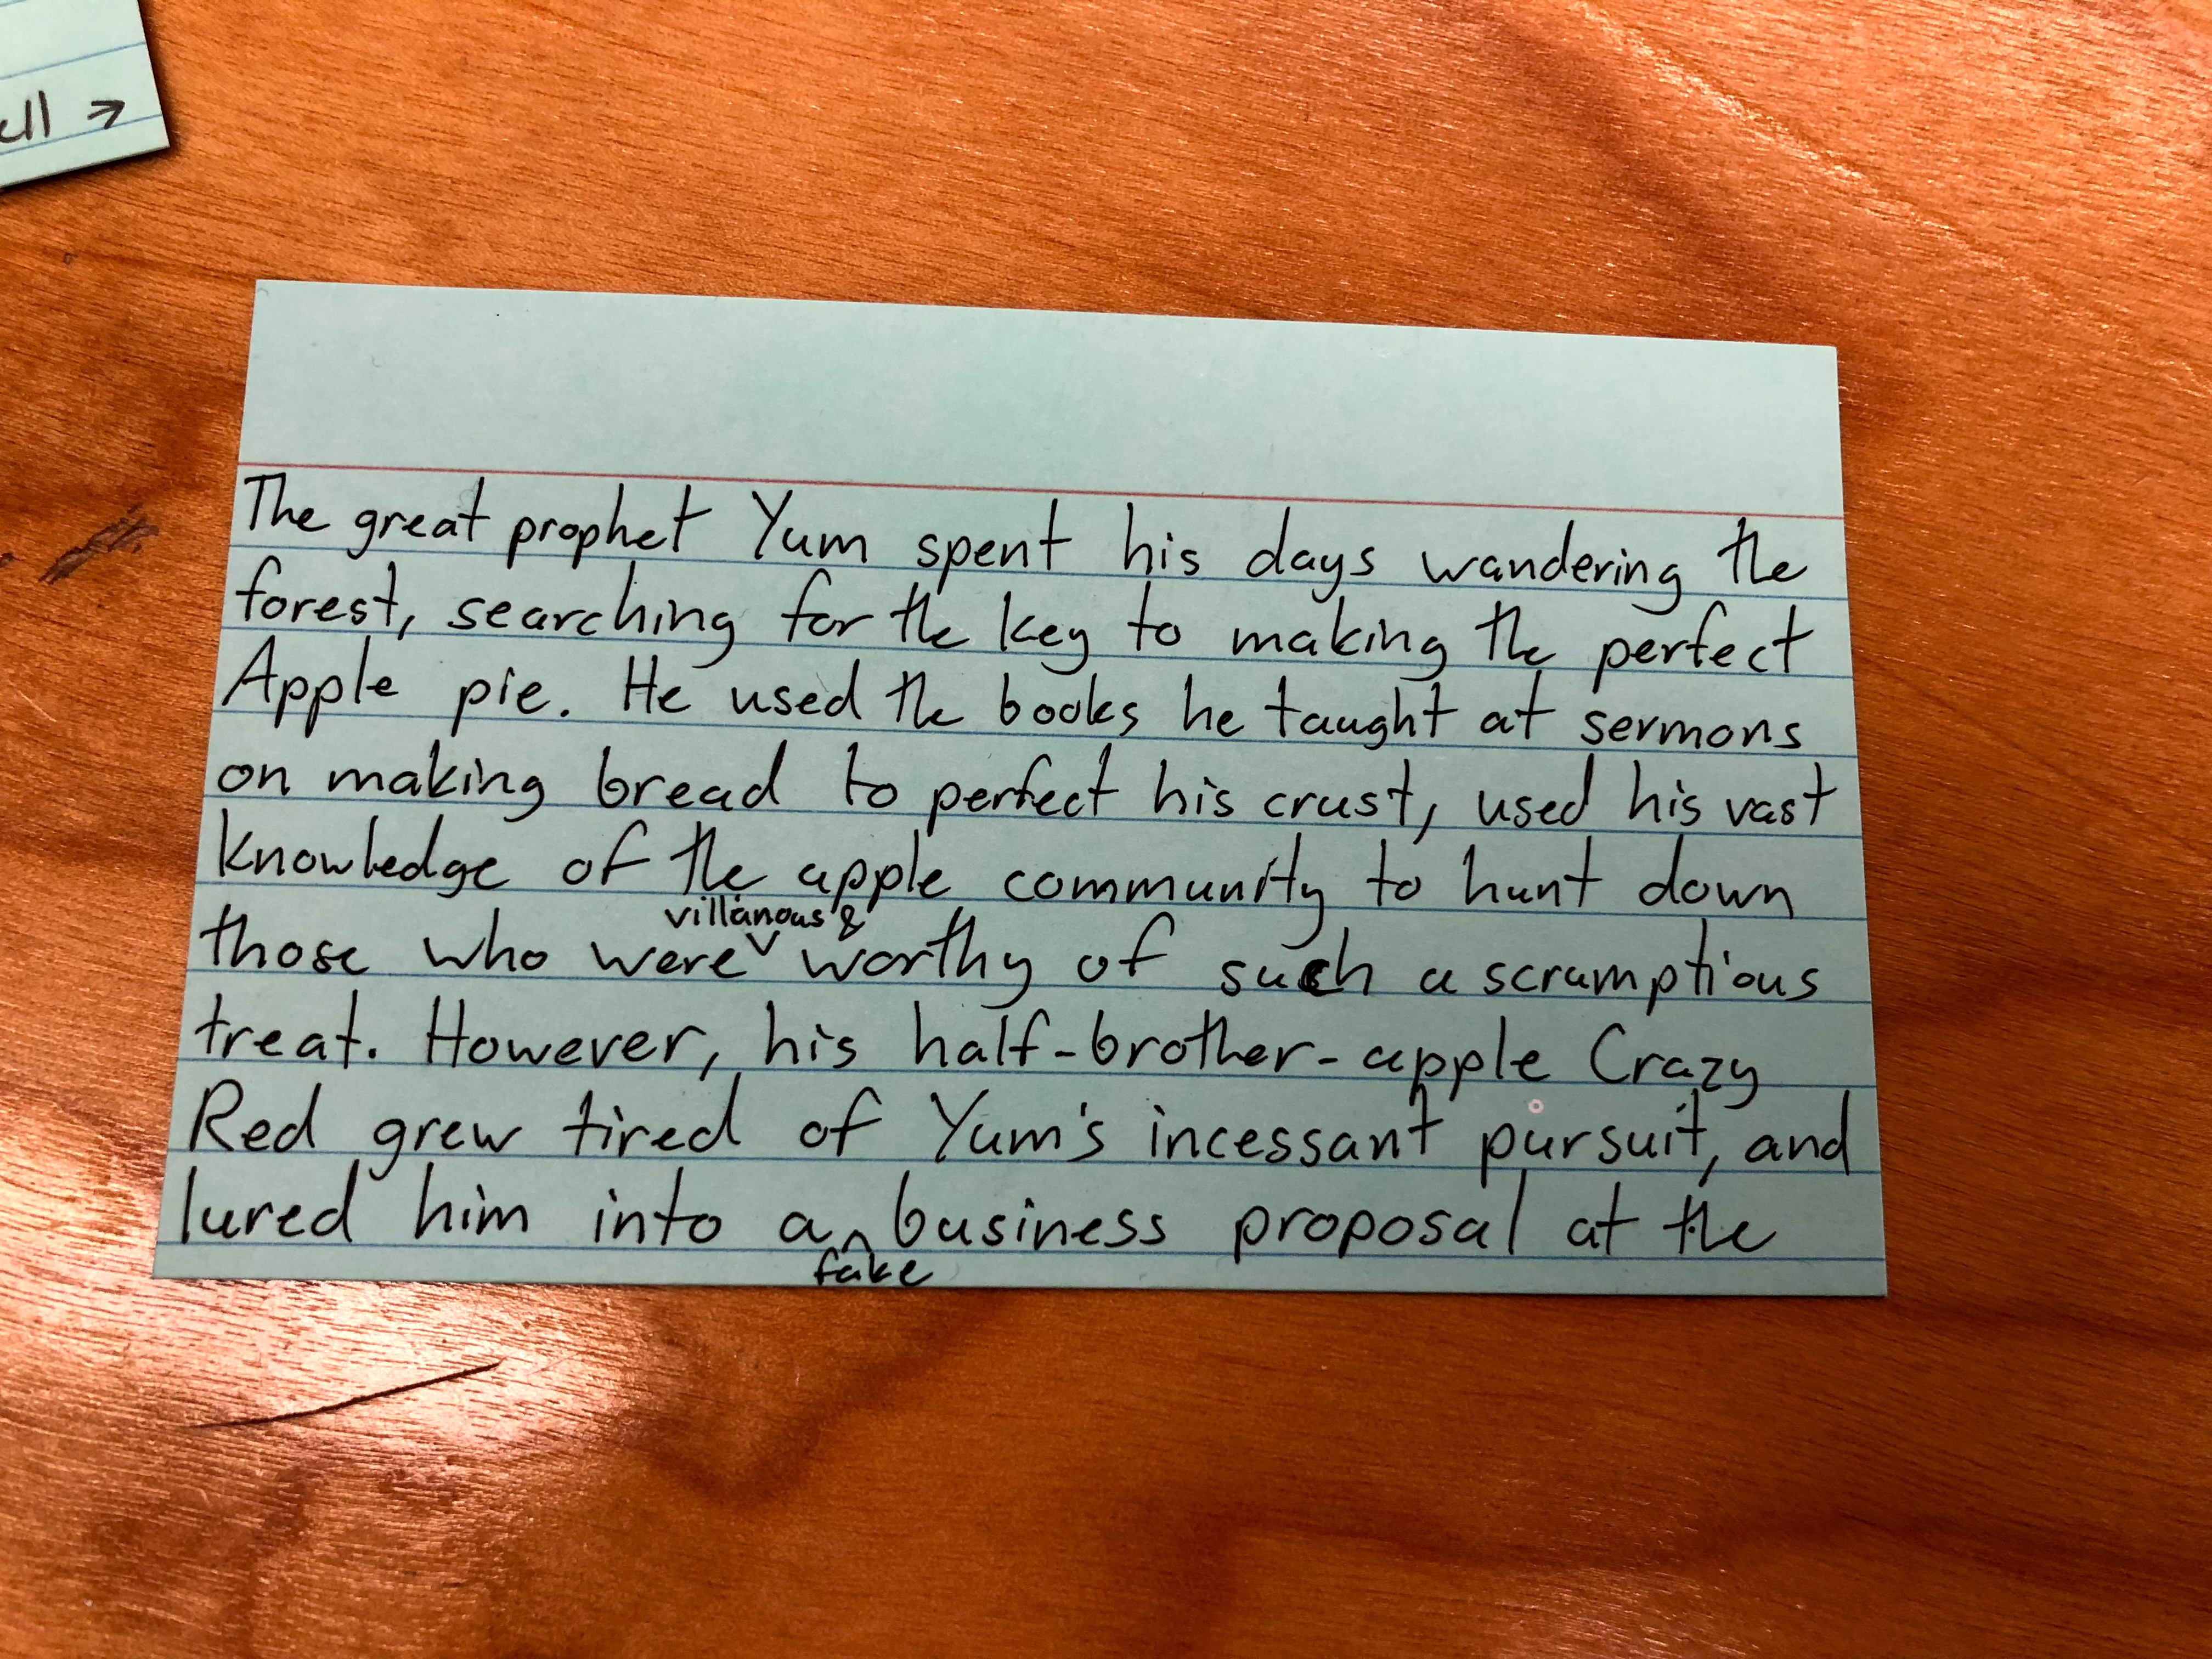 ell →
The great prophet Yum spent his days wandering the
forest, searching for the key to making the perfect
Apple pie. He used the books he taught at sermons
on making bread to perfect his crust, used his vast
knowledge of the apple community to hunt down
villanous &
those who were worthy of such a scrumptious
treat. However, his half-brother-apple Crazy
Red grew tired of Yum's incessant pursuit, and
lured him into a business proposal at the
fake